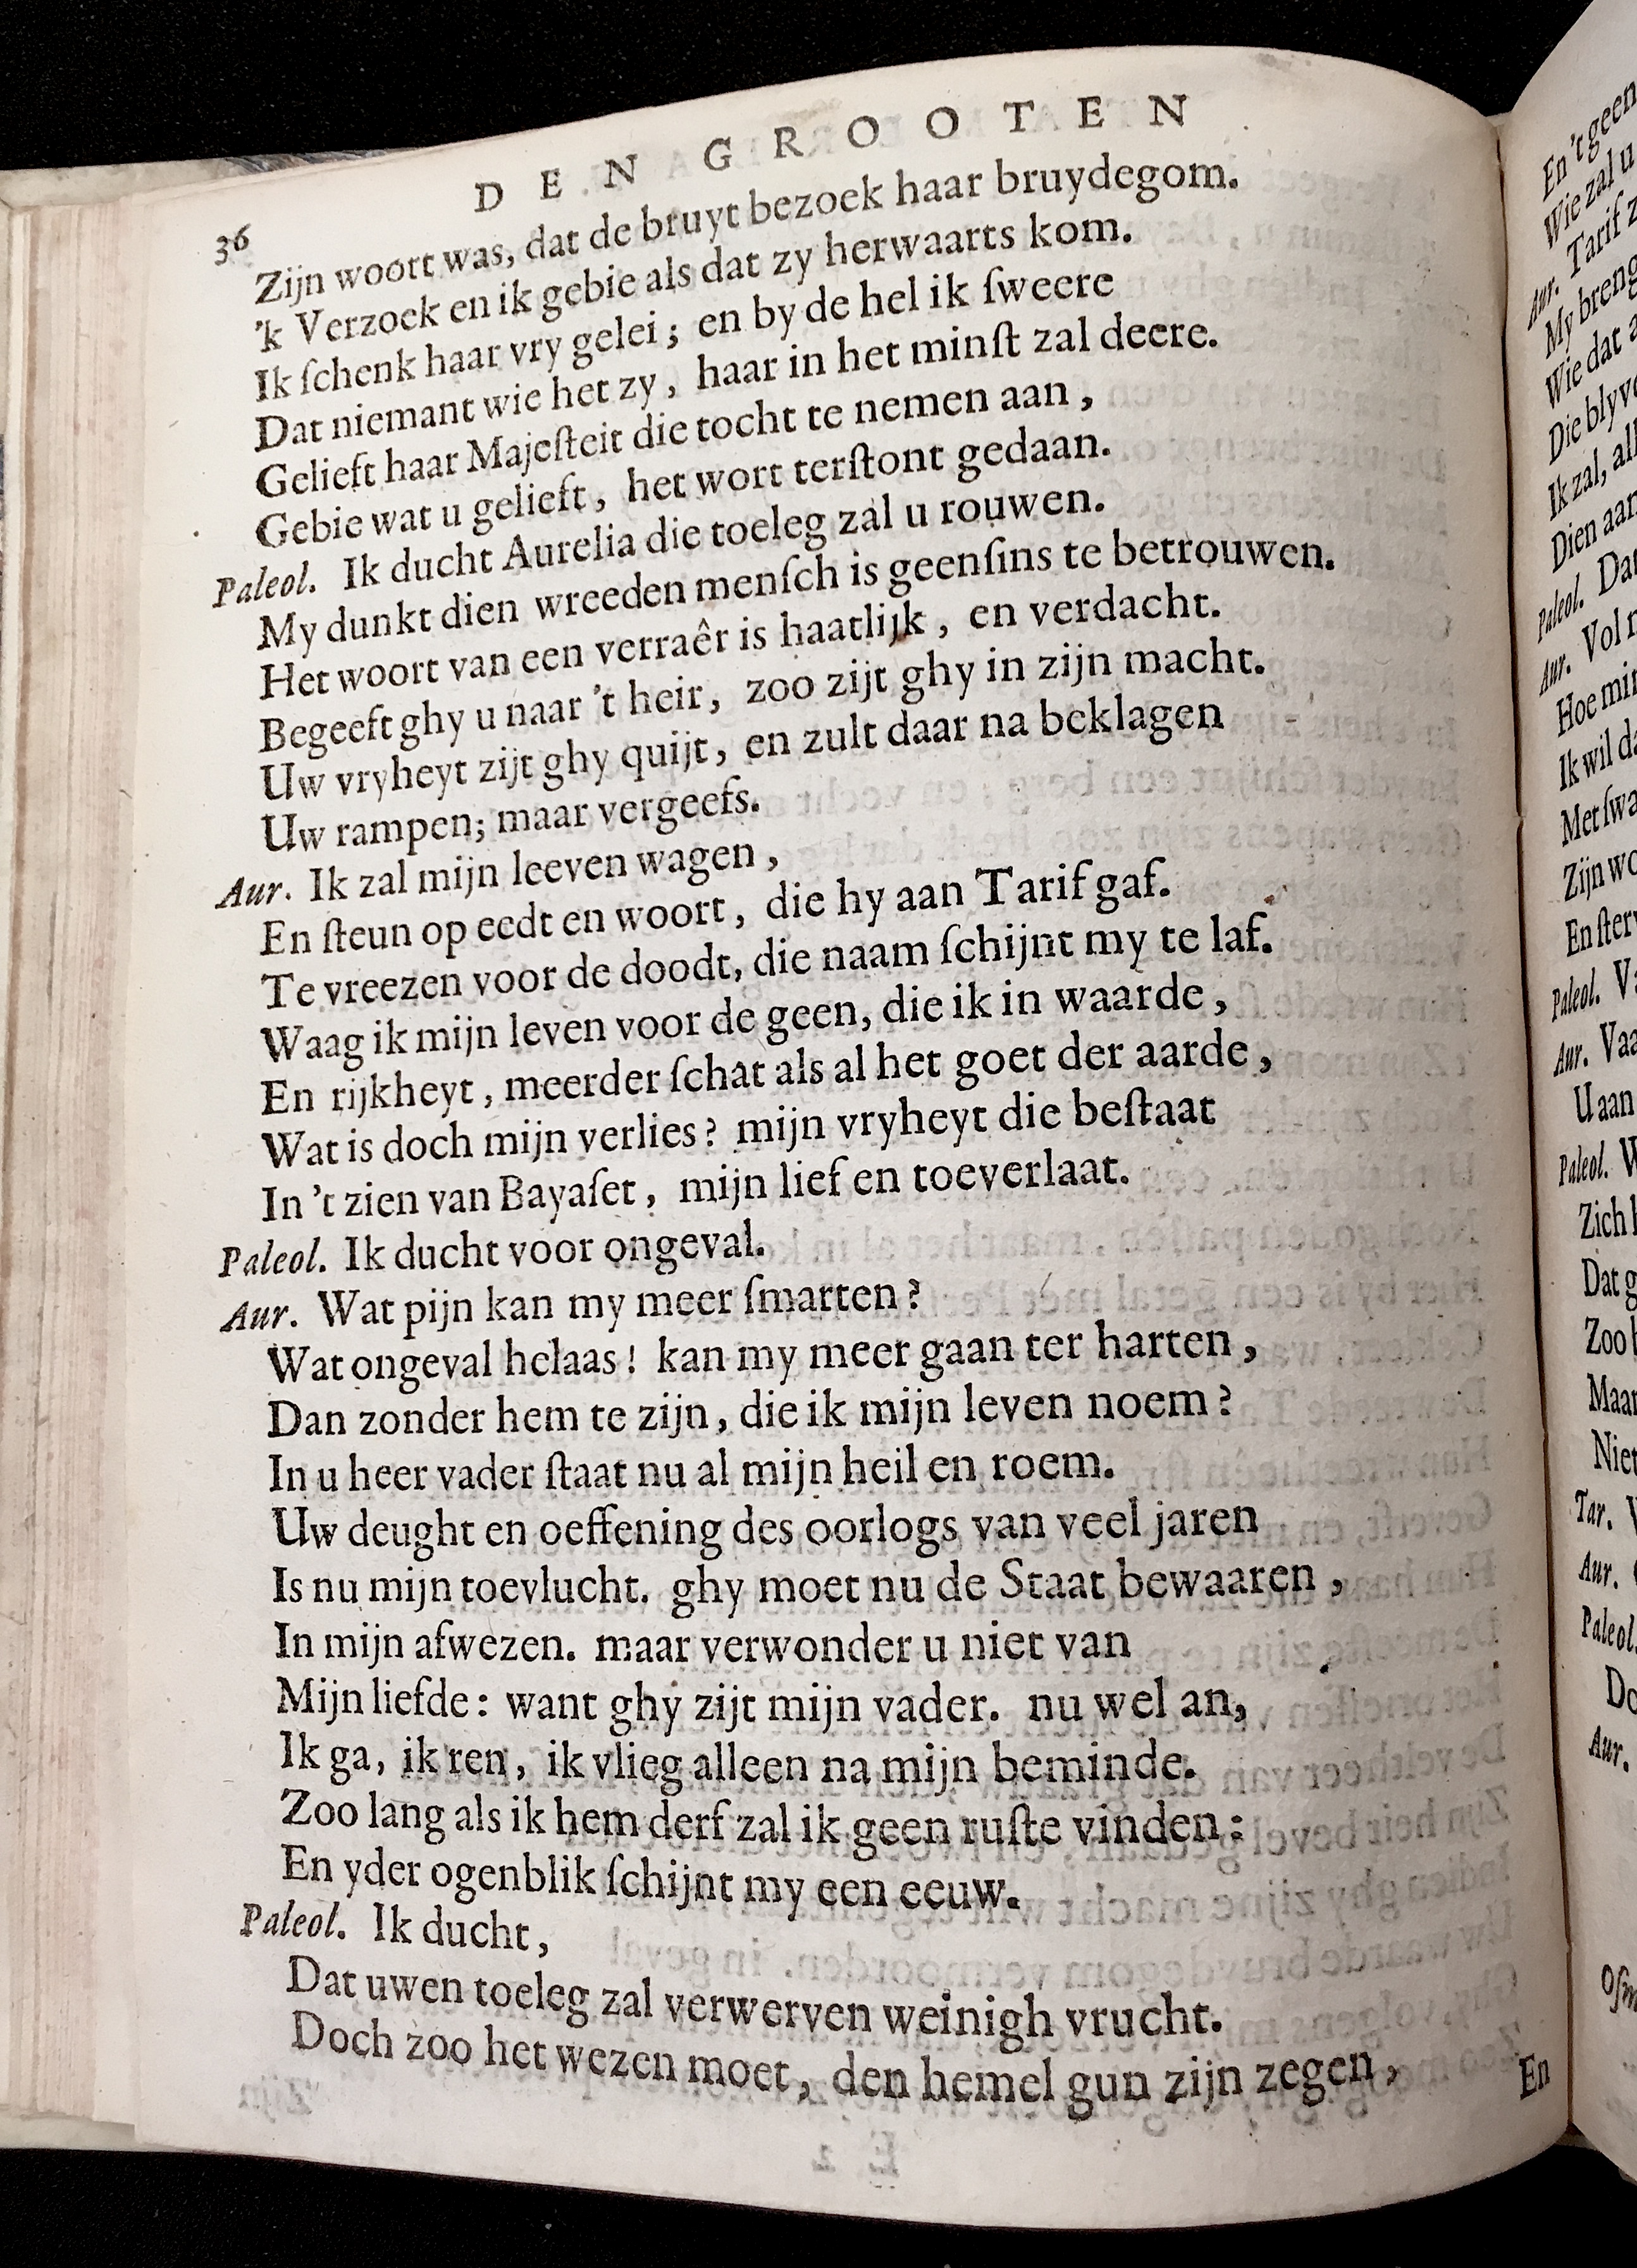 36
DEN GROOTEN
Zijn woort was, dat de bruyt bezoek haar bruydegom.
'k Verzoek en ik gebie als dat zy herwaarts kom.
Ik ſchenk haar vry gelei; en by de hel ik ſweere
Dat niemant wie het zy, haar in het minſt zal deere.
Gelieft haar Majeſteit die tocht te nemen aan,
Gebie wat u gelieft, het wort terſtont gedaan.
Paleol. Ik ducht Aurelia die toeleg zal u rouwen.
My dunkt dien wreeden menſch is geenſins te betrouwen.
Het woort van een verraêr is haatlijk, en verdacht.
Begeeft ghy u naar 't heir, zoo zijt ghy in zijn macht.
Uw vryheyt zijt ghy quijt, en zult daar na beklagen
Uw rampen; maar vergeefs.
Aur. Ik zal mijn leeven wagen,
En ſteun op eedt en woort, die hy aan Tarif gaf.
Te vreezen voor de doodt, die naam ſchijnt my te laf.
Waag ik mijn leven voor de geen, die ik in waarde,
En rijkheyt, meerder ſchat als al het goet der aarde,
Wat is doch mijn verlies? mijn vryheyt die beſtaat
In 't zien van Bayaſet, mijn lief en toeverlaat.
Paleol. Ik ducht voor ongeval.
Aur. Wat pijn kan my meer ſmarten?
Wat ongeval helaas! kan my meer gaan ter harten,
Dan zonder hem te zijn, die ik mijn leven noem?
In u heer vader ſtaat nu al mijn heil en roem.
Uw deught en oeffening des oorlogs van veel jaren
Is nu mijn toevlucht. ghy moet nu de Staat bewaaren,
In mijn afwezen. maar verwonder u niet van
Mijn liefde: want ghy zijt mijn vader. nu wel an,
Ik ga, ik ren, ik vlieg alleen na mijn beminde.
Zoo lang als ik hem derf zal ik geen ruſte vinden:
En yder ogenblik ſchijnt my een eeuw.
Paleol. Ik ducht,
Dat uwen toeleg zal verwerven weinigh vrucht.
Doch zoo het wezen moet, den hemel gun zijn zegen,
En
En 't geen
Wie zal u
Aur. Tarif
My breng
Wie dat
Die blyv
Ik zal, al
Dien aan
Paleol. Dat
Aur. Vol
Hoe min
Ik wil
Met ſwa
Zijn wo
En ſter
Paleol.
Aur. Vaa
U aan
Paleol.
Zich
Dat
Zoo
Maar
Niet
Tar.
Aur.
Paleol.
Do
Aur.